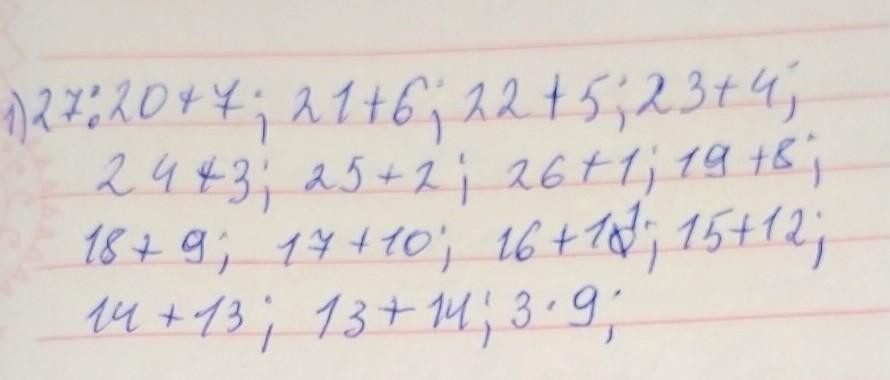 1) 27: 20+7; 21+6; 22+5; 23+4;
24+3; 25+2; 26+1; 19+8;
18+9; 17+10; 16+11; 15+12;
14+13; 13+14; 3·9;